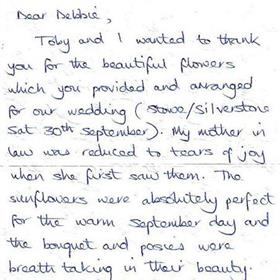 Dear Debbie,
Toby and I wanted to thank
you for the beautiful flowers
which you provided and arranged
for our wedding (Stowe/Silverstone
Sat 30th September). My mother in
law was reduced to tears of joy
when she first saw them. The
sunflowers were absolutely perfect
for the warm September day and
the bouquet and posies were
breath taking in their beauty.